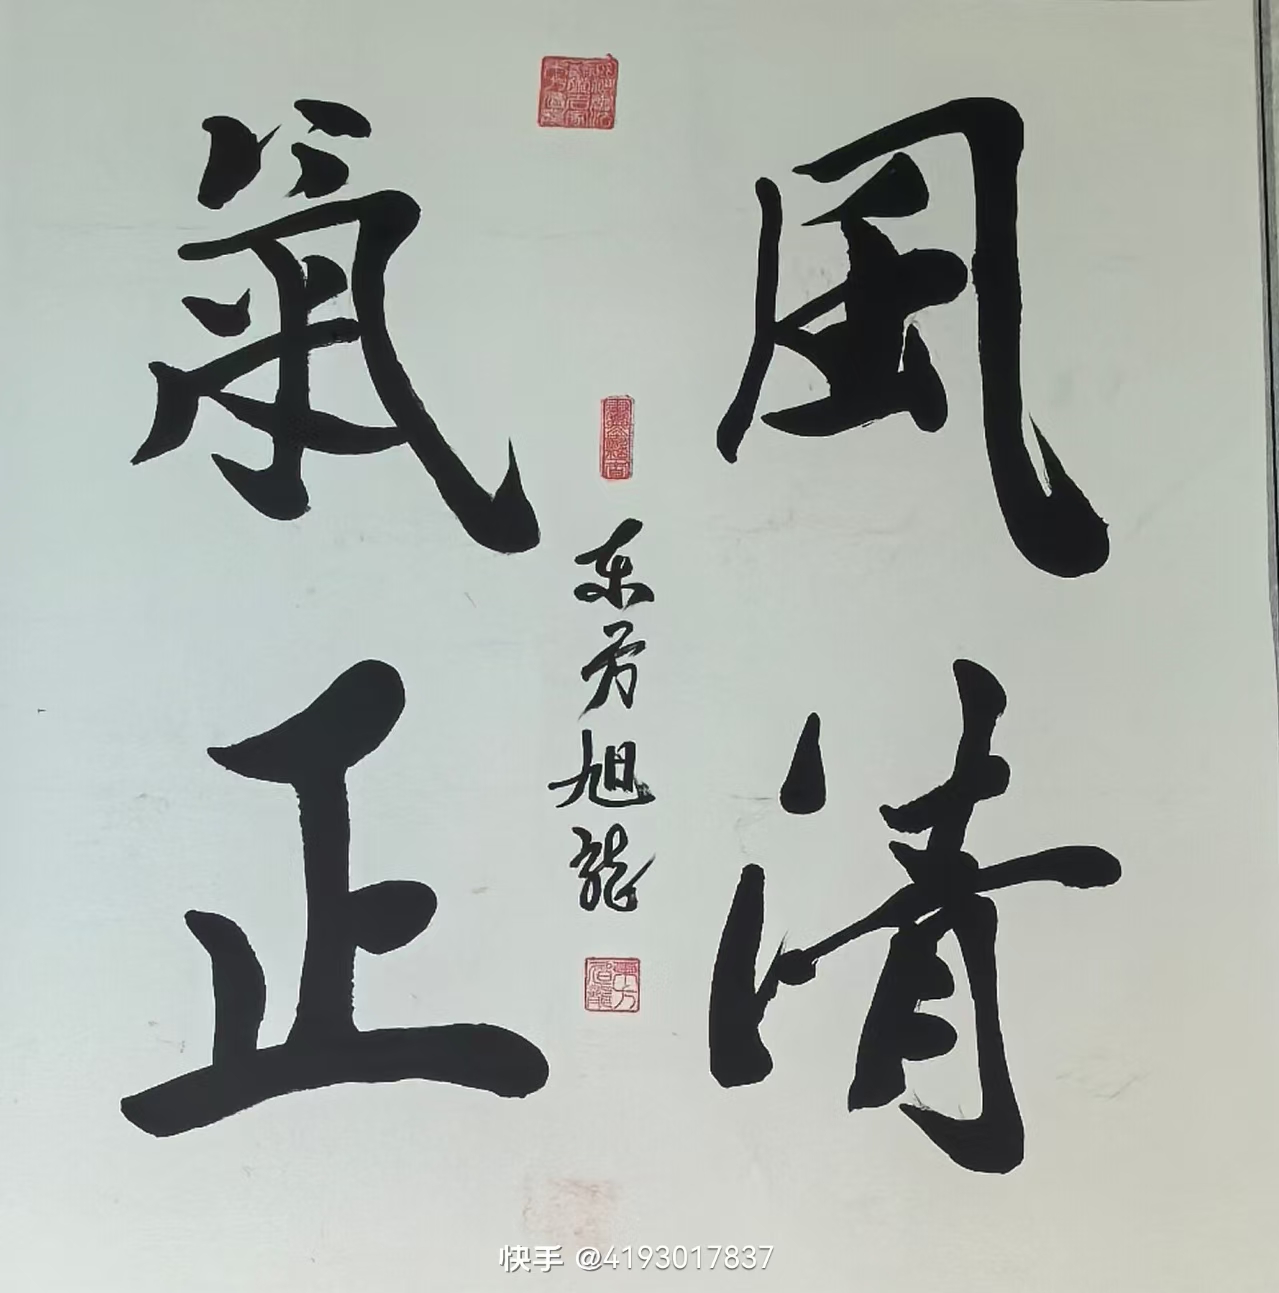 風清
氣正
东方旭龍
东方旭龍
快手 @4193017837